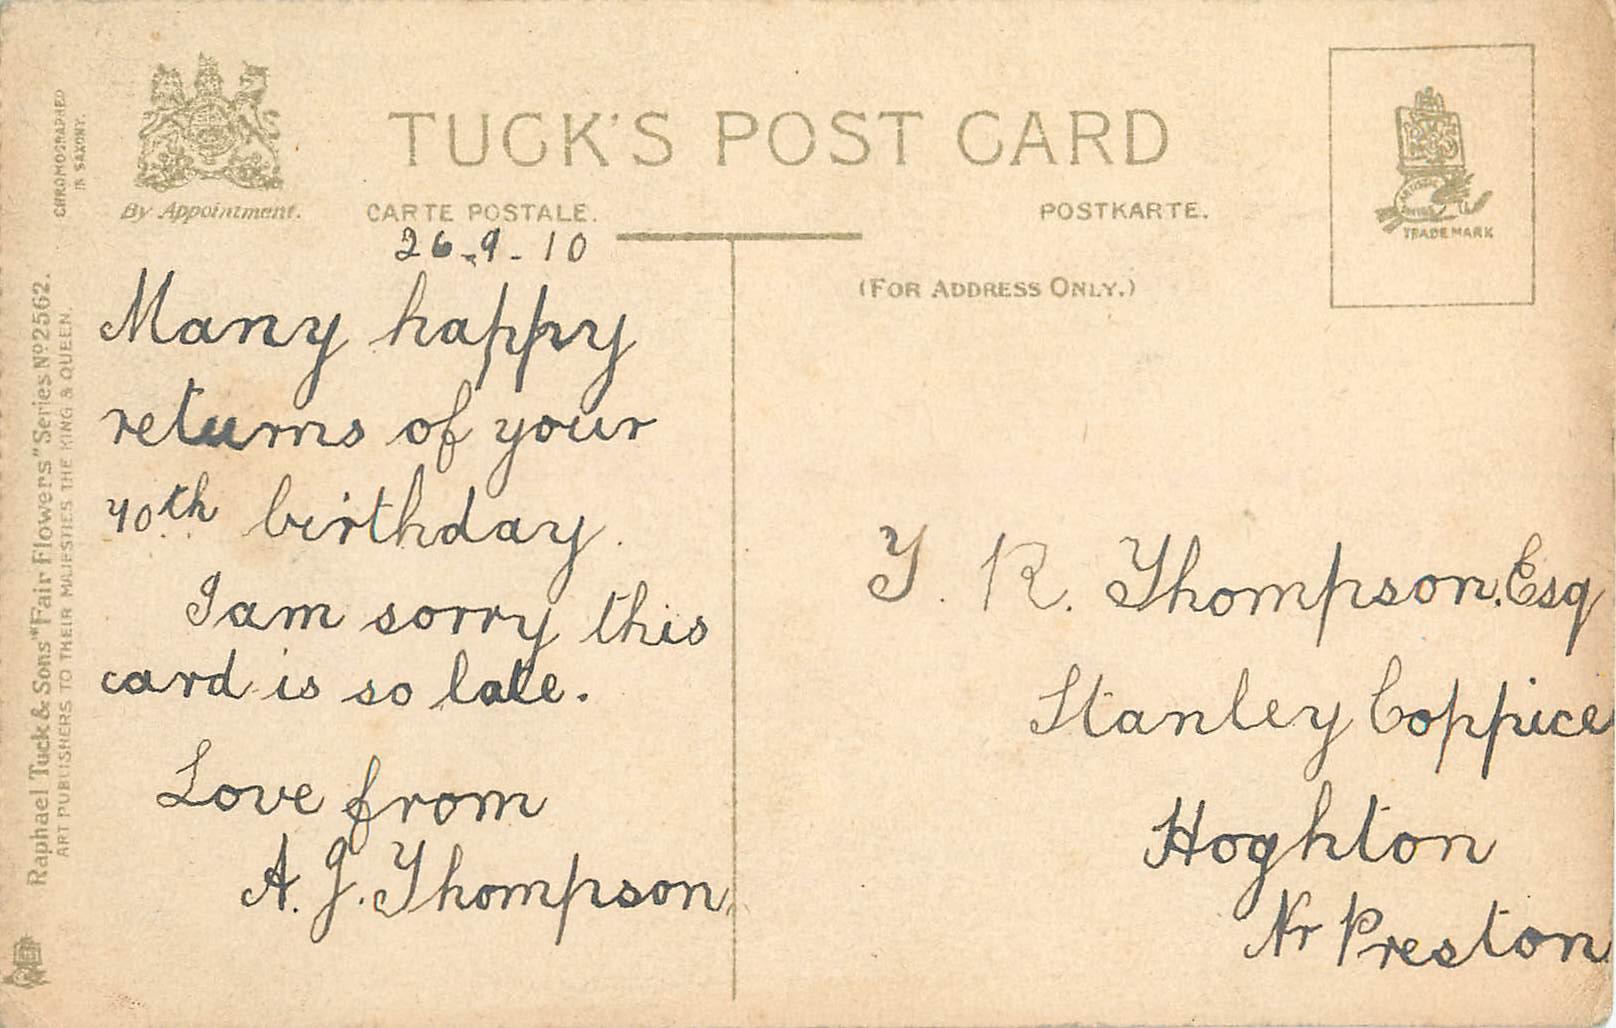 CHROMOGRAPHED
IN SAXONY.
By Appointment.
TUCK'S POST CARD
CARTE POSTALE.
POSTKARTE.
TRADE MARK
(FOR ADDRESS ONLY.)
Raphael Tuck & Sons' "Fair Flowers" Series Nº 2562.
ART PUBLISHERS TO THEIR MAJESTIES THE KING & QUEEN.
26-9-10
Many happy
returns of your
40th birthday.
I am sorry this
card is so late.
Love from
A. J. Thompson.
T. R. Thompson. Esq
Stanley Coppice
Hoghton
Nr Preston